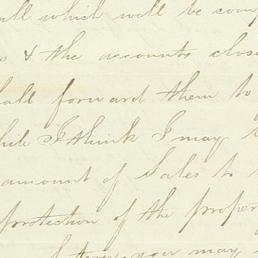 which will be com
& the accounts clos
all forward them to
hile I think I may
amount of Sales to
protection of the proper
you may